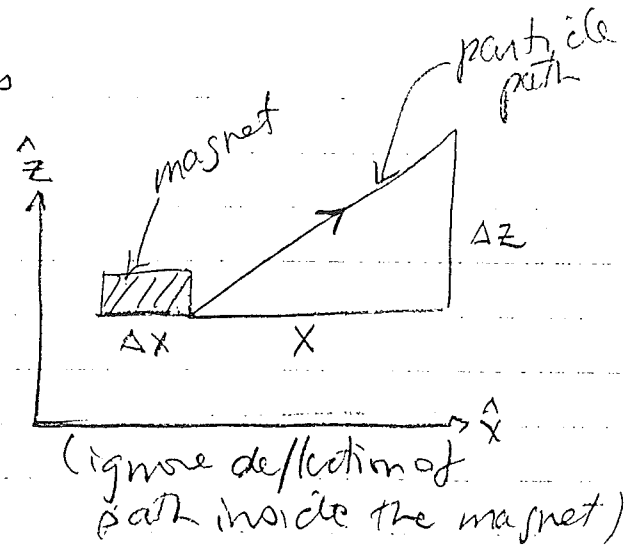 particle
path
magnet
ẑ
ΔZ
ΔX
X
x̂
(ignore deflection of
path inside the magnet)